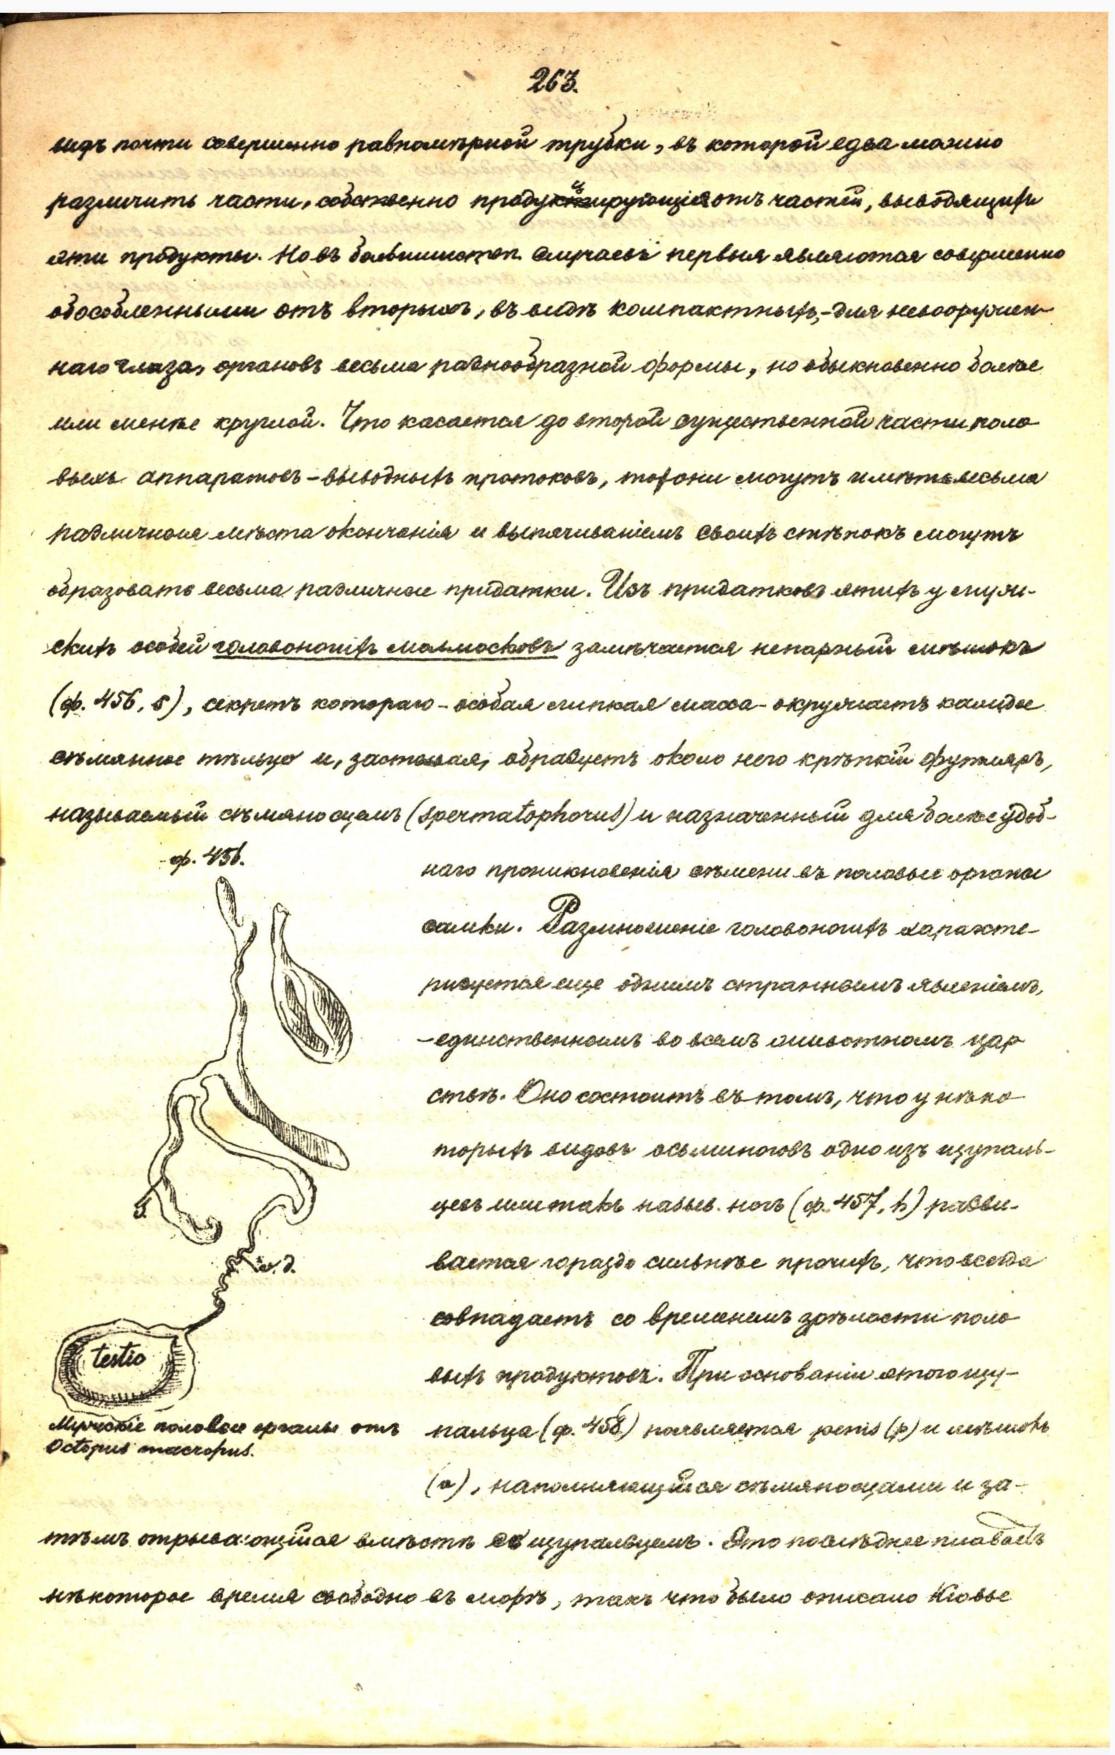 263.
видѣ почти совершенно равномѣрной трубки, въ которой едва можно
различить части, собственно продуцирующія отъ частей, выводящихъ
эти продукты. Но въ большинствѣ случаевъ первыя являются совершенно
обособленными отъ вторыхъ, въ видѣ компактныхъ, - для невооружен-
наго глаза, органовъ весьма разнообразной формы, но обыкновенно болѣе
или менѣе круглой. Что касается до второй существенной части поло
выхъ аппаратовъ - выводныхъ протоковъ, то они могутъ имѣть весьма
различныя мѣста окончанія и выпячиваніемъ своихъ стѣнокъ могутъ
образовать весьма различные придатки. Изъ придатковъ этихъ у муж-
скихъ особей головоногихъ моллюсковъ замѣчается непарный мѣшокъ
(ф. 456, s), секретъ котораго - особая липкая масса - окружаетъ каждое
сѣмянное тѣльце и, застывая, образуетъ около него крѣпкій футляръ,
называемый сѣмяносцемъ (spermatophorus) и назначенный для болѣе удоб-
ф. 456.
наго проникновенія сѣмени въ половые органы
самки. Размноженіе головоногихъ характе-
ризуется еще однимъ страннымъ явленіемъ,
- единственнымъ во всемъ животномъ цар
ствѣ. Оно состоитъ въ томъ, что у нѣко
торыхъ видовъ осьминоговъ одно изъ щупаль-
цевъ или такъ назыв. ногъ (ф. 457, h) разви-
вается гораздо сильнѣе прочихъ, что всегда
совпадаетъ со временемъ зрѣлости поло
выхъ продуктовъ. При основаніи этого щу-
пальца (ф. 458) появляется penis (p) и мѣшокъ
(a), наполняющійся сѣмяносцами и за-
s.
v. d.
testis
Мужскіе половые органы отъ
Octopus macropus.
тѣмъ отрывающійся вмѣстѣ со щупальцемъ. Это послѣднее плаваетъ
нѣкоторое время свободно въ морѣ, такъ что было описано Кювье